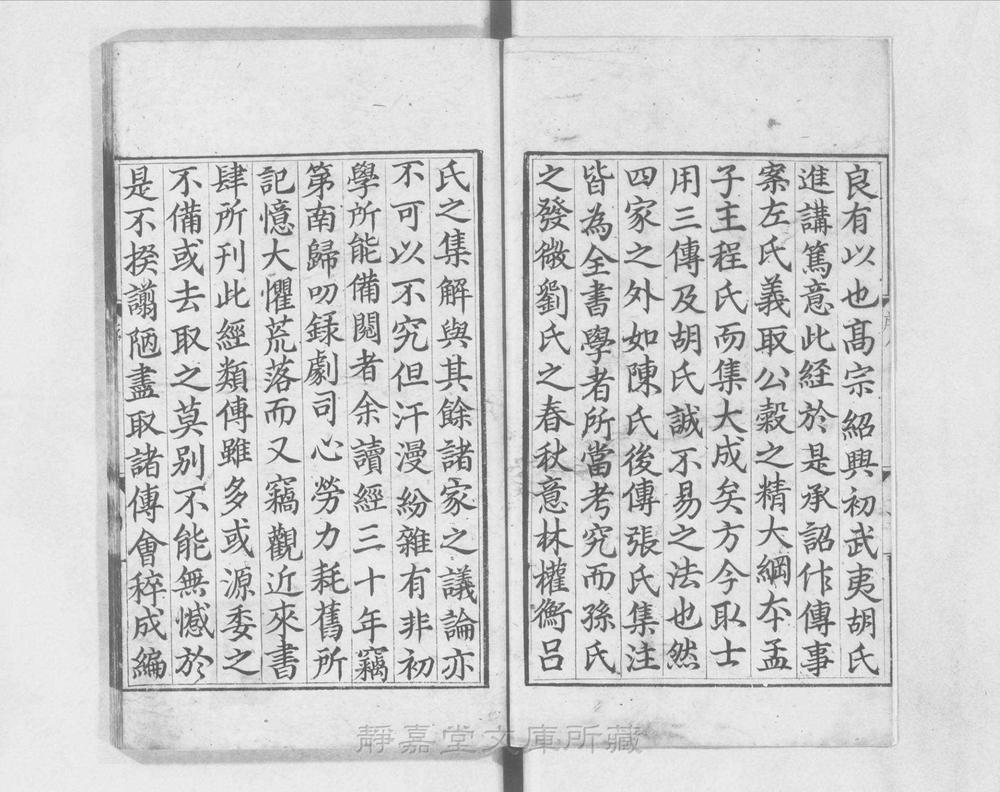 良有以也高宗紹興初武夷胡氏
進講篤意此経於是承詔作傳事
案左氏義取公穀之精大綱夲孟
子主程氏而集大成矣方今取士
用三傳及胡氏誠不易之法也然
四家之外如陳氏後傳張氏集注
皆為全書學者所當考究而孫氏
之發微劉氏之春秋意林權衡呂
氏之集解與其餘諸家之議論亦
不可以不究但汗漫紛雜有非初
學所能備閱者余讀經三十年竊
第南歸叨録劇司心勞力耗舊所
記憶大懼荒落而又竊觀近來書
肆所刊此經類傳雖多或源委之
不備或去取之莫別不能無憾於
是不揆謭陋盡取諸傳會稡成編
靜嘉堂文庫所藏